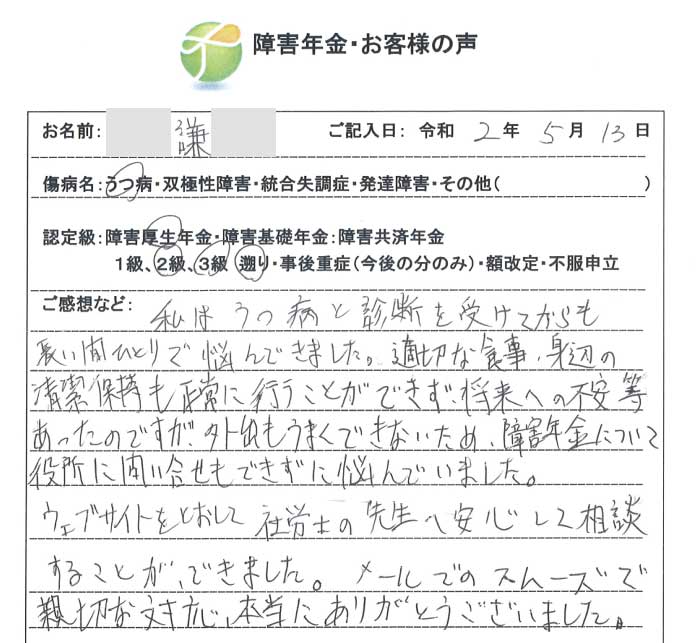 障害年金・お客様の声
お名前: 謙 ご記入日: 令和 2 年 5 月 13 日
傷病名:うつ病・双極性障害・統合失調症・発達障害・その他( )
認定級:障害厚生年金・障害基礎年金:障害共済年金
1級、2級、3級 遡り・事後重症(今後の分のみ)・額改定・不服申立
ご感想など: 私はうつ病と診断を受けてからも
長い間ひとりで悩んできました。適切な食事、身辺の
清潔保持も正常に行うことができず、将来への不安等
あったのですが、外出もうまくできないため、障害年金について
役所に問い合せもできずに悩んでいました。
ウェブサイトをとおして社労士の先生へ安心して相談
することができました。メールでのスムーズで
親切な対応、本当にありがとうございました。